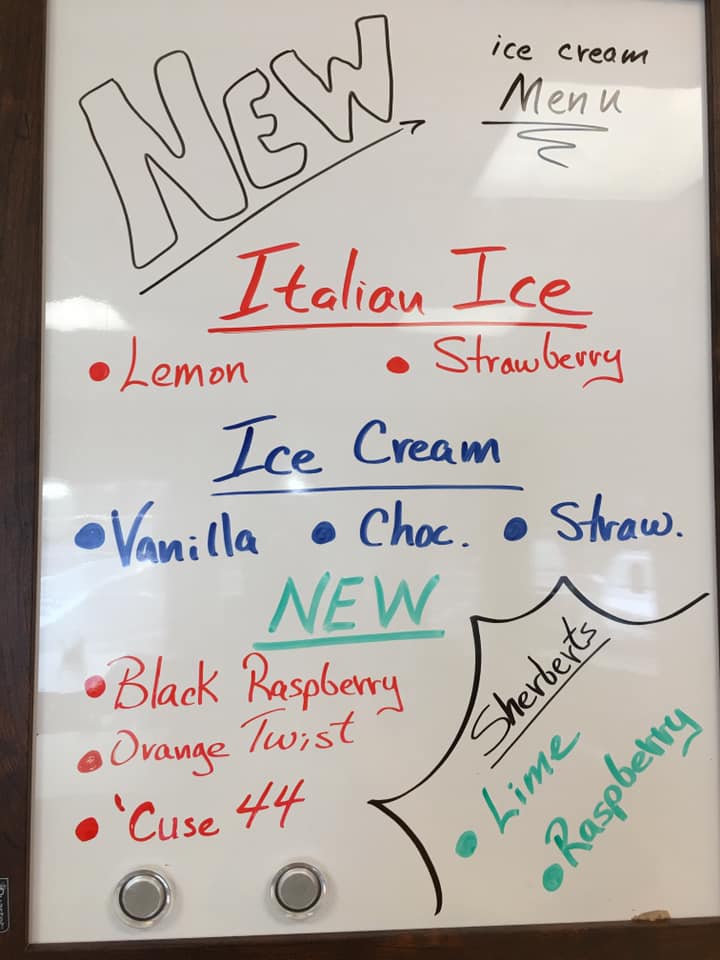 NEW
ice cream
Menu
Italian Ice
• Lemon • Strawberry
Ice Cream
• Vanilla • Choc. • Straw.
NEW
• Black Raspberry
• Orange Twist
• 'Cuse 44
Sherberts
• Lime
• Raspberry